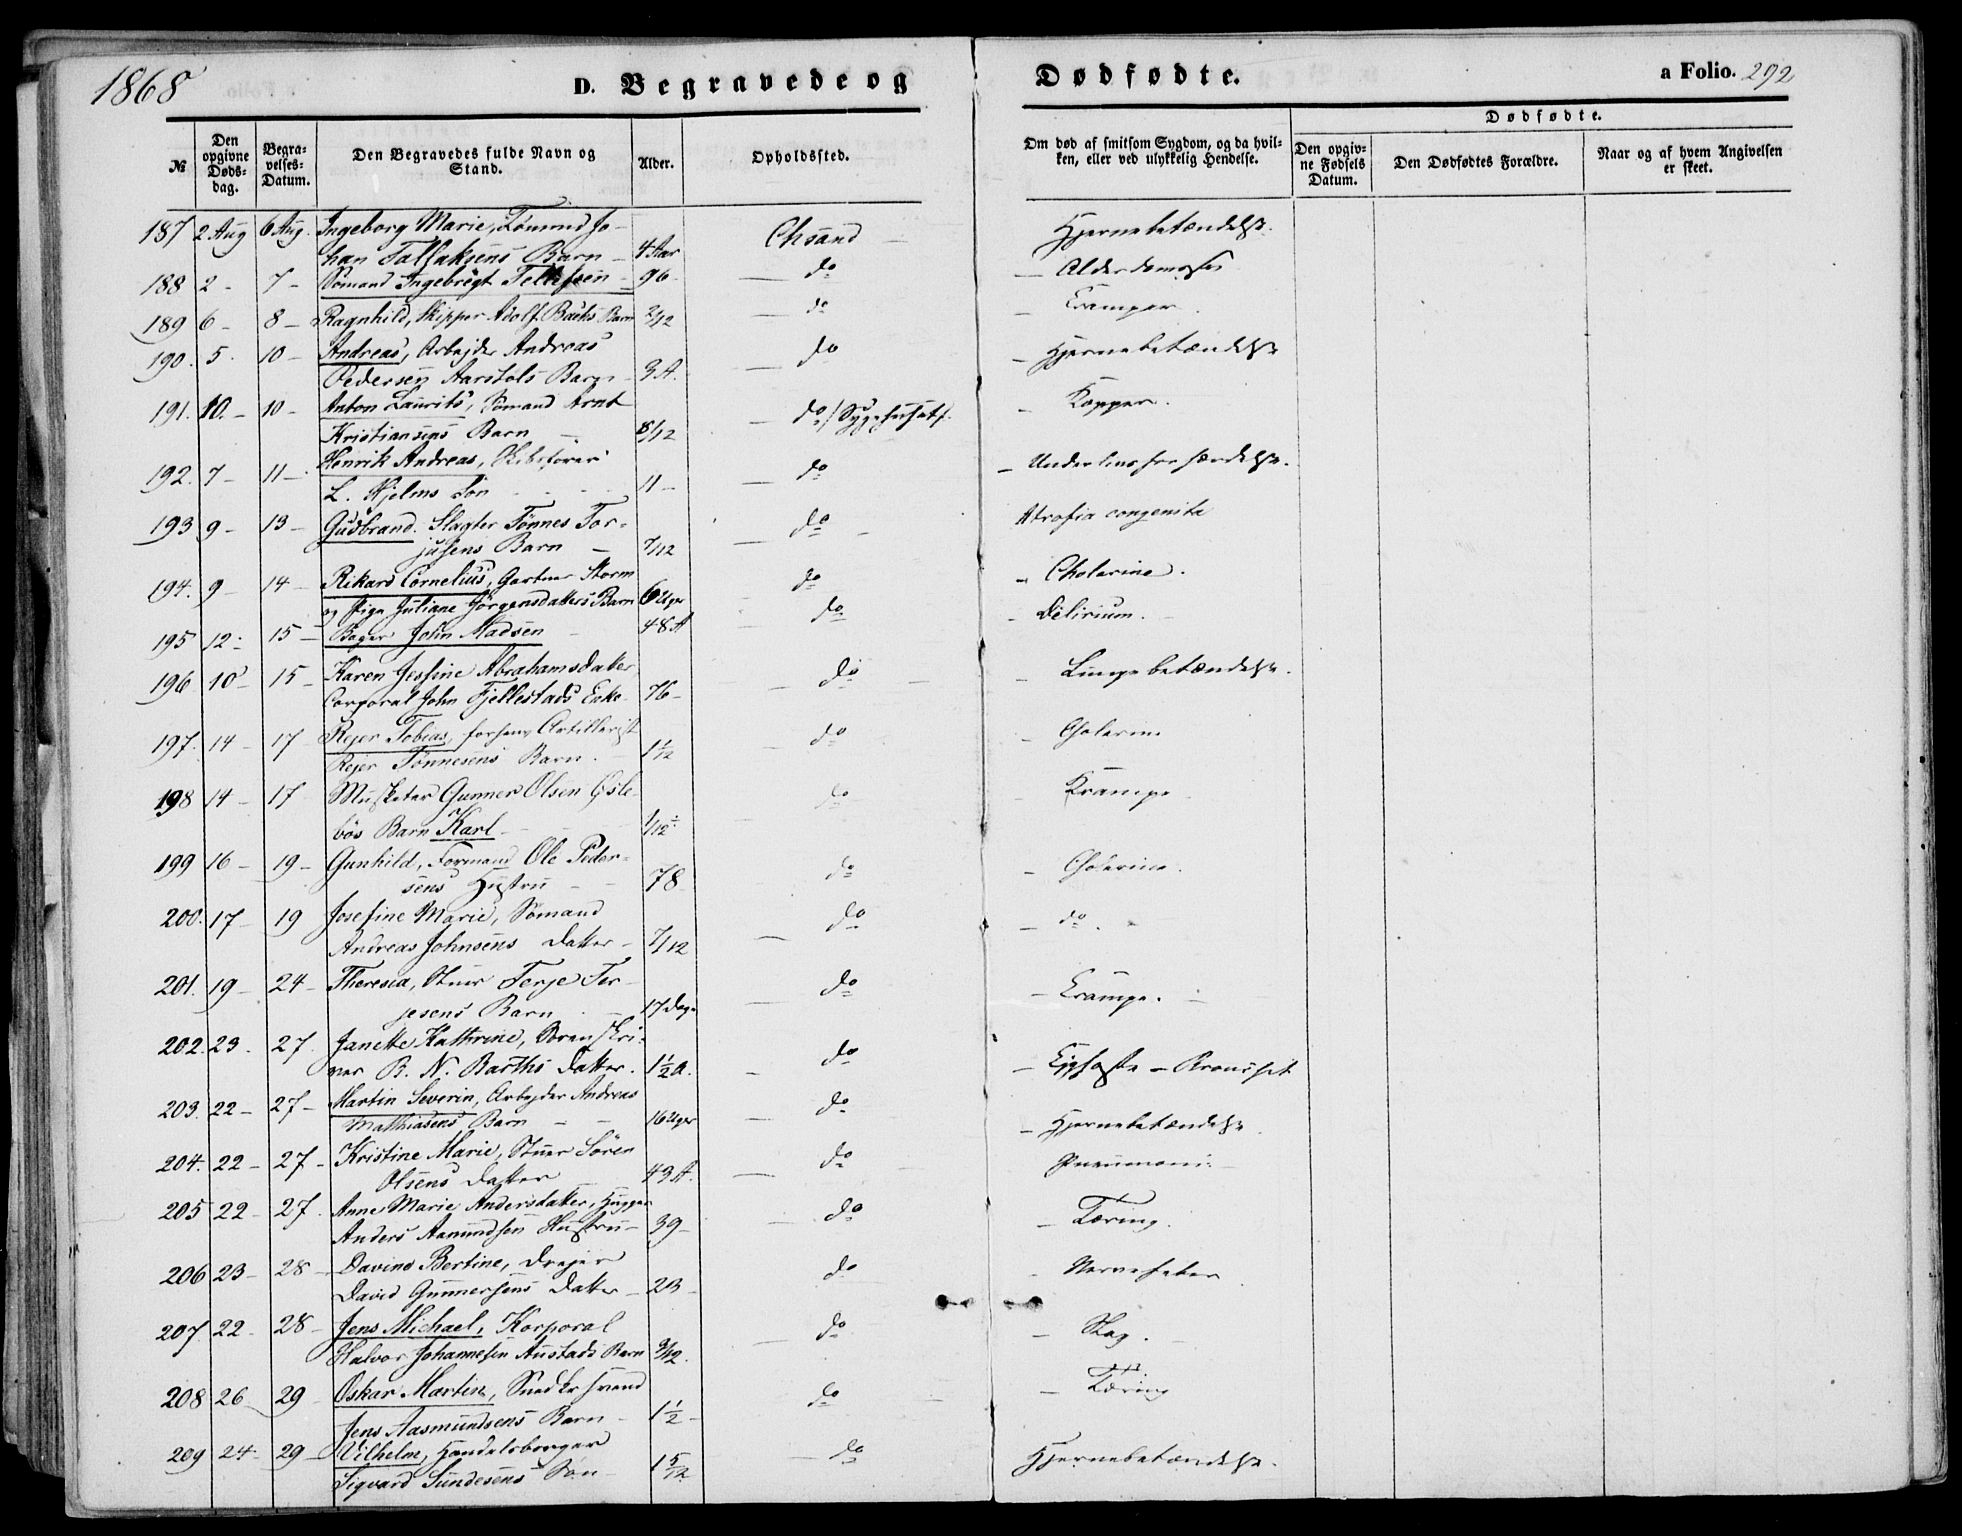 1868
D. Begravede og Dødfødte.
a Folio. 292
№
Den opgivne Dødsdag.
Begravelses-Datum.
Den Begravedes fulde Navn og Stand.
Alder.
Opholdssted.
Om død af smitsom Sygdom, og da hvilken, eller ved ulykkelig Hendelse.
Dødfødte.
Den opgivne Fødsels Datum.
Den Dødfødtes Forældre.
Naar og af hvem Angivelsen er skeet.
187 2 Aug 6 Aug. Ingeborg Marie, Lømand Jo-
han Tallaksens Barn – 4 Aar Chsand – Hjernebetændelse.
188 2 – 7 – Sømand Ingebregt Tellefsen – 96 – do – Alderdomssvs
189 6 – 8 – Ragnhild, Skipper Adolf Bachs Barn 3/12 do Kramper.
190. 5. 10 – Andreas, Arbejder Andreas
Pedersen Aarstøls Barn – 3 A. do – Hjernebetændelse
191. 10. – 10 – Anton Laurits, Sømand Arnt
Kristiansens Barn – 8/12 – do /: Sygehuset /. – Kopper.
192. 7 – 11 – Henrik Andreas, Skibsfører
L. Hjelms Søn 11 – do – Underlivsbetændelse.
193 9 – 13 – Gudbrand. Slagter Tønnes Tor-
jusens Barn – 7/12 – do – Atrofia congenita
194. 9 – 14 – Rikard Cornelius, Gartner Storm
og Pige Juliane Jørgensdatters Barn 6 Uger do – Cholerine.
195 12 – 15 – Bager John Madsen 48 A – do – Delirium.
196 10 – 15 – Karen Jessine Abrahamsdatter
Corporal John Fjellestads Enke 76 – – do – – Lungebetændelse.
197. 14 – 17 Rejer Tobias, forhenv. Artillerist
Rejer Tønnesens Barn. – 1 1/12 do – Cholerine
198 14 – 17 – Musketer Gunner Olsen Gisle-
bøs Barn Karl – 1/12 do – Krampe
199 16 – 19 – Gunhild, Formand Ole Peder-
sens Hustru – 78 do – Cholerine.
200. 17 – 19 Josefine Marie, Sømand
Andreas Johnsens Datter – 7/12 – do – do.
201. 19 – 24 – Theresia, Stuer Terje Ter-
jesens Barn – 17 Dage – do – Krampe.
202. 23. 27. Janette Kathrine, Sorenskri-
ver B. N. Barths Datter. 1 1/2 A. – do – Kighoste – Bronchit
203. 22 – 27 – Martin Severin, Arbejder Andreas
Mathiasens Barn – 16 Uger – do – Hjernebetændelse.
204. 22 – 27 – Kristine Marie, Stuer Søren
Olsens Datter 43 A. – do Pneumoni –
205 22 – 27. Anne Marie Andersdatter, Hugger
Anders Aanundsen Hustru – 39 – – do – Tæring.
206 23 – 28 – Davine Bertine, Drejer
David Gunnersens Datter – 23 – do – Nervefeber
207. 22 – 28 – Jens Michael, Korporal
Halvor Johannesen Austads Barn 3/12. – do – Slag. –
208 26 29 – Oskar Martin, Snedkersvend
Jens Aasmundsens Barn – 1 1/2 – do – Tæring
209 24 – 29 – Vilhelm, Handelsborger
Sigvard Sundesens Søn – 1 5/12 – do Hjernebetændelse.